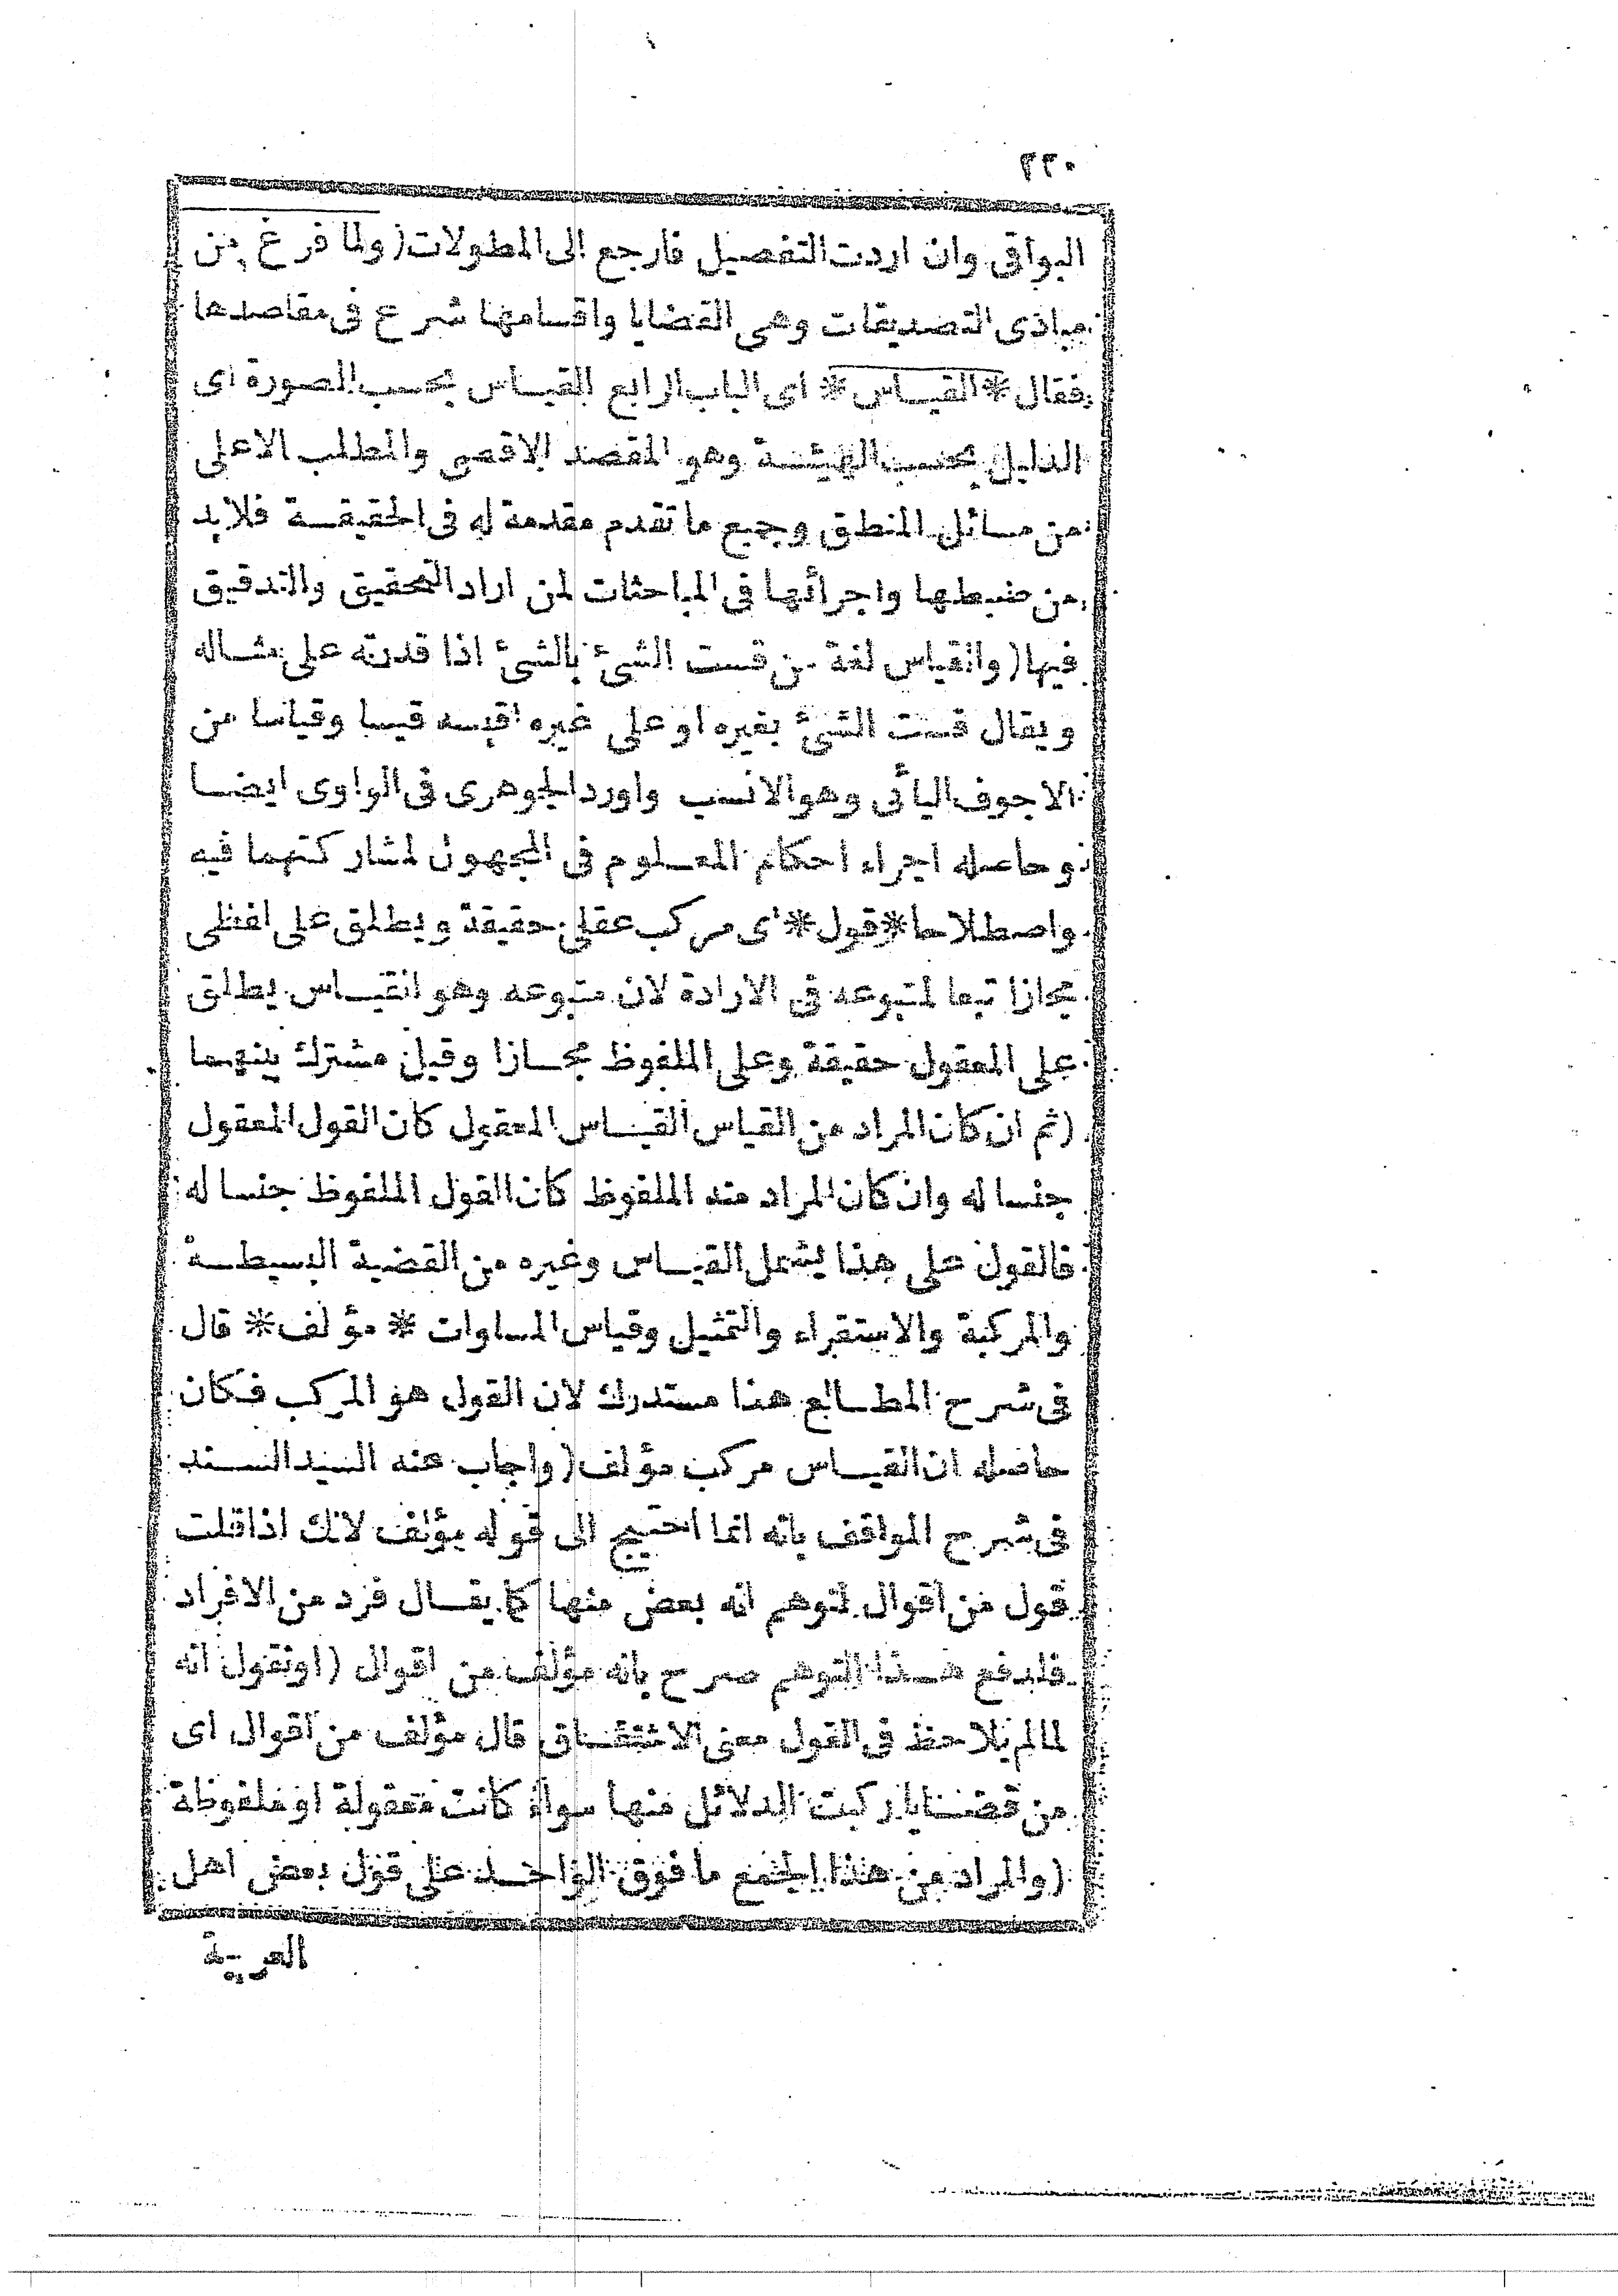 ٢٢٠
البواقى وان اردت التفصيل فارجع الى المطولات (ولما فرغ من
مبادى التصديقات وهى القضايا واقسامها شرع فى مقاصدها
فقال * القياس * اى الباب الرابع القياس بحسب الصورة اى
الدليل بحسب الهيئة وهو المقصد الاقصى والمطلب الاعلى
من مسائل المنطق وجميع ما تقدم مقدمة له فى الحقيقة فلا بد
من ضبطها واجرائها فى المباحثات لمن اراد التحقيق والتدقيق
فيها (والقياس لغة من قست الشئ بالشئ اذا قدرته على مثاله
ويقال قست الشئ بغيره او على غيره اقيسه قيسا وقياسا من
الاجوف اليائى وهو الانسب واورد الجوهرى فى الواوى ايضا
وحاصله اجراء احكام المعلوم فى المجهول لمشاركتهما فيه
واصطلاحا * قول * اى مركب عقلى حقيقة ويطلق على لفظى
مجازا تبعا لمتبوعه فى الارادة لان متبوعه وهو القياس يطلق
على المعقول حقيقة وعلى الملفوظ مجازا وقيل مشترك بينهما
(ثم ان كان المراد من القياس القياس المعقول كان القول المعقول
جنسا له وان كان المراد منه الملفوظ كان القول الملفوظ جنسا له
فالقول على هذا يشمل القياس وغيره من القضية البسيطة
والمركبة والاستقراء والتمثيل وقياس المساوات * مؤلف * قال
فى شرح المطالع هذا مستدرك لان القول هو المركب فكان
حاصله ان القياس مركب مؤلف (واجاب عنه السيد السند
فى شرح المواقف بانه انما احتيج الى قوله مؤلف لانك اذا قلت
قول من اقوال لتوهم انه بعض منها كما يقال فرد من الافراد
فلدفع هذا التوهم صرح بانه مؤلف من اقوال (او نقول انه
لما لم يلاحظ فى القول معنى الاشتقاق قال مؤلف من اقوال اى
من قضايا ركبت الدلائل منها سواء كانت معقولة او ملفوظة
(والمراد من هذا الجمع ما فوق الواحد على قول بعض اهل
العربية